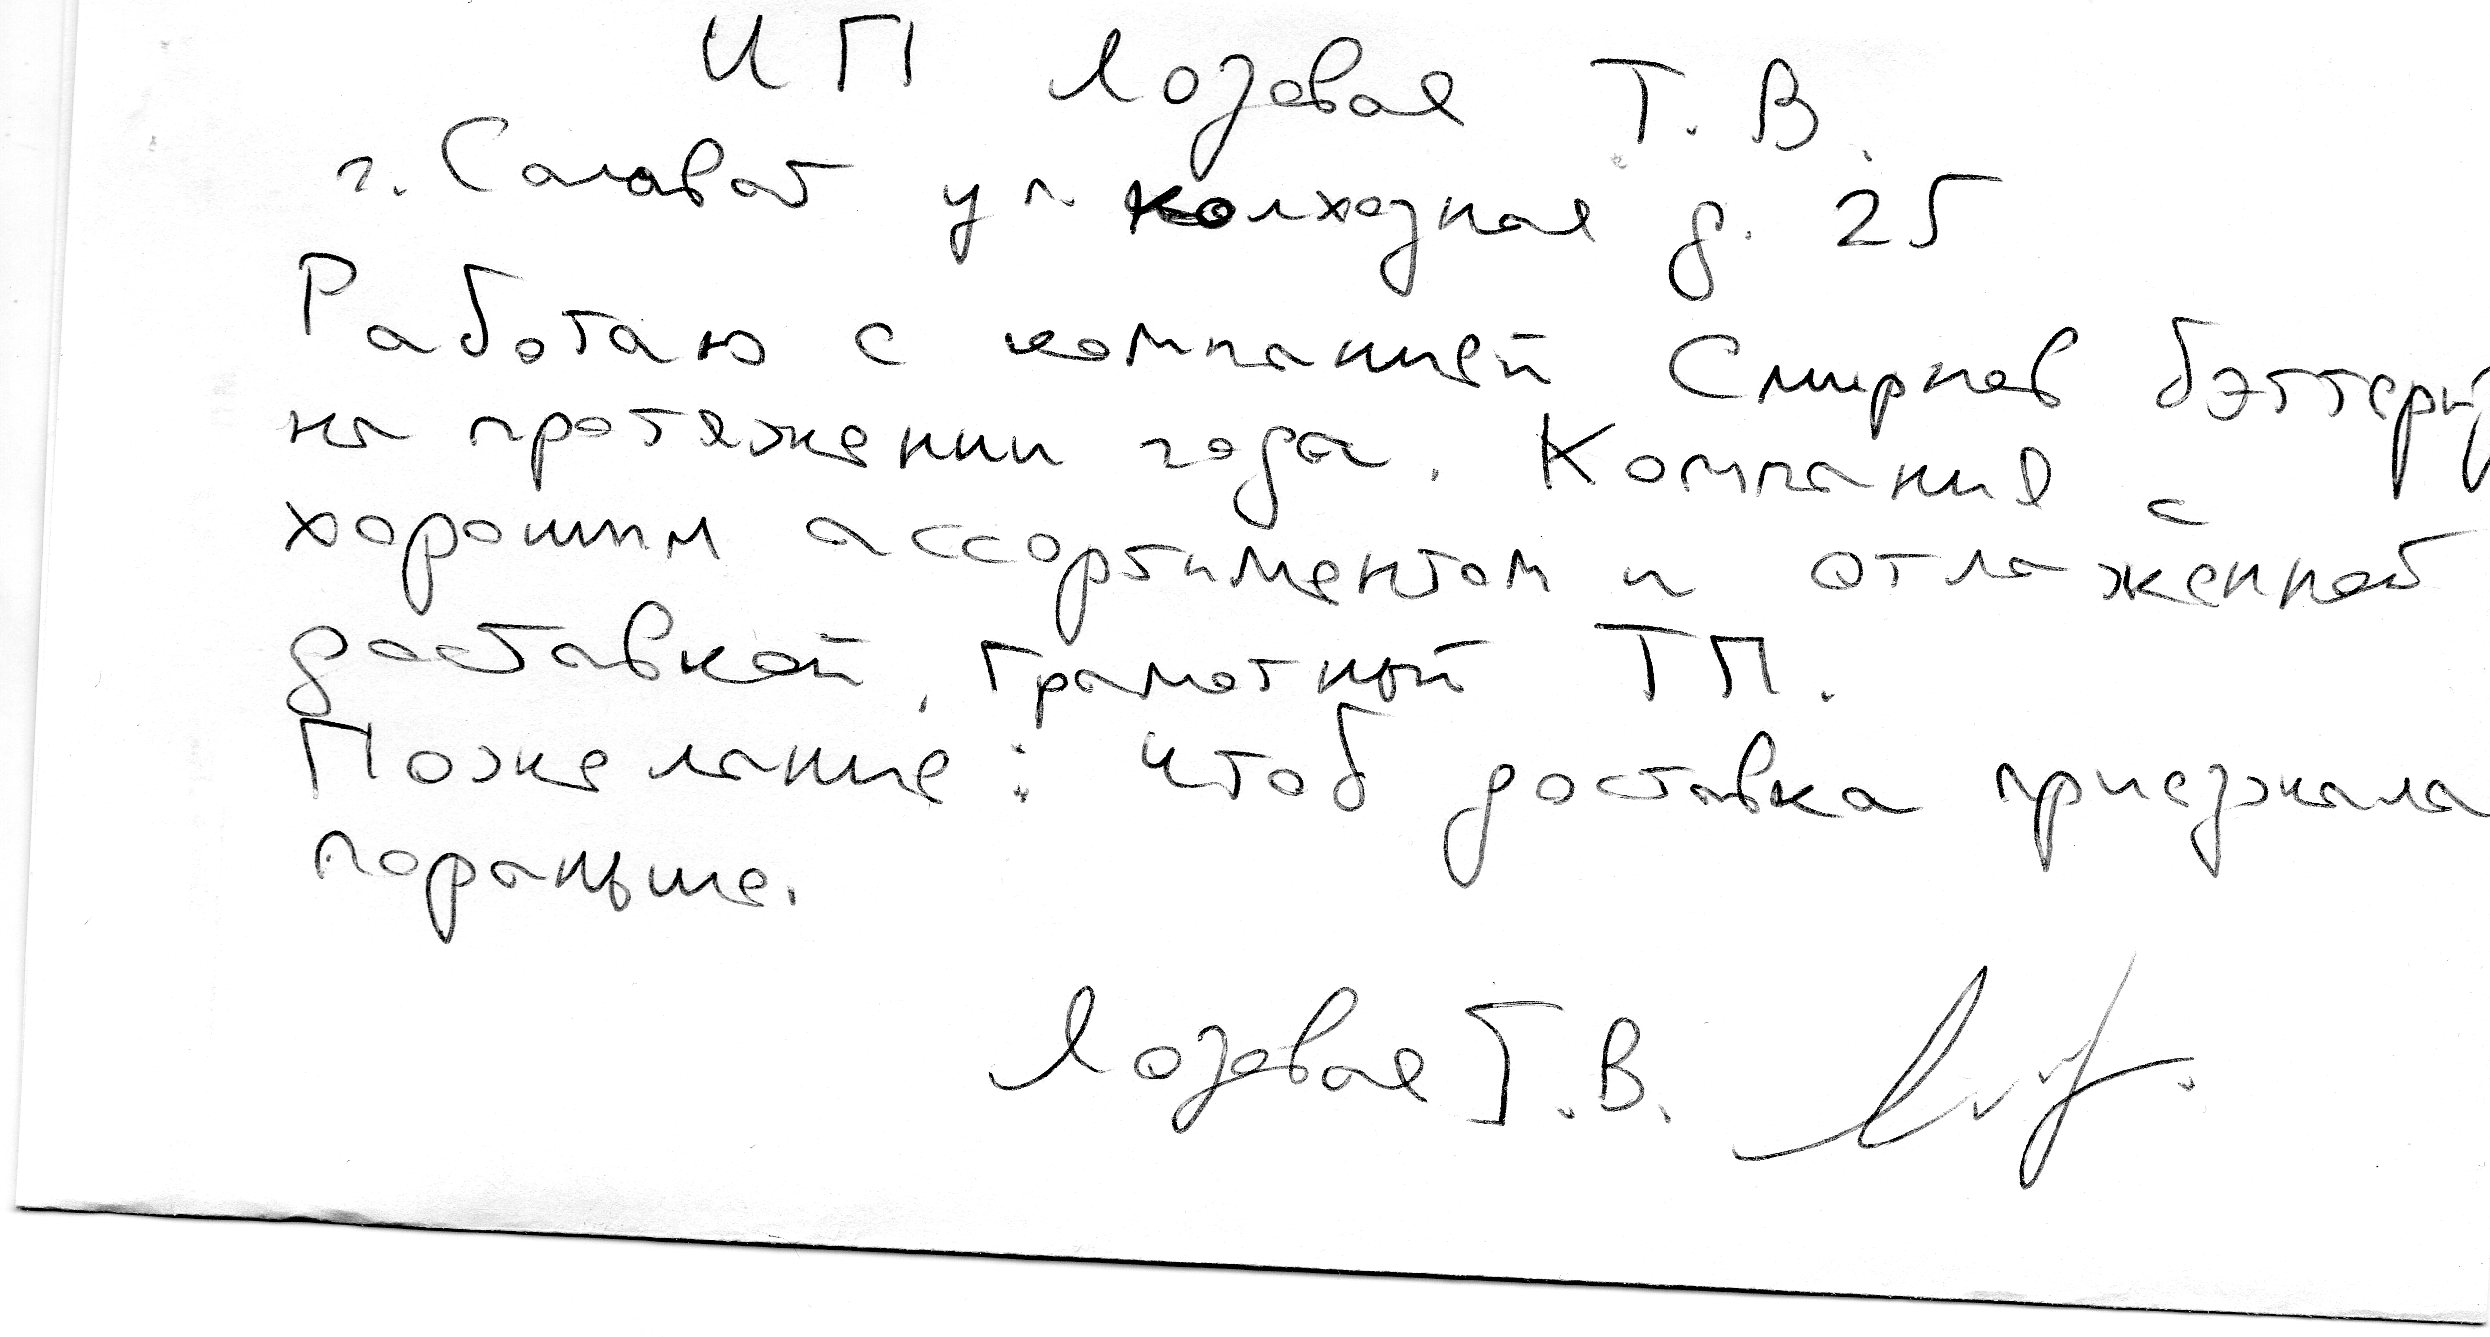 ИП Лозовая Т. В.
г. Салават ул колхозная д. 25
Работаю с компанией Смирнов бэттериз
на протяжении года. Компания с
хорошим ассортиментом и отлаженной
доставкой, грамотный ТП.
Пожелание: чтоб доставка приезжала
пораньше.
Лозовая Т.В.